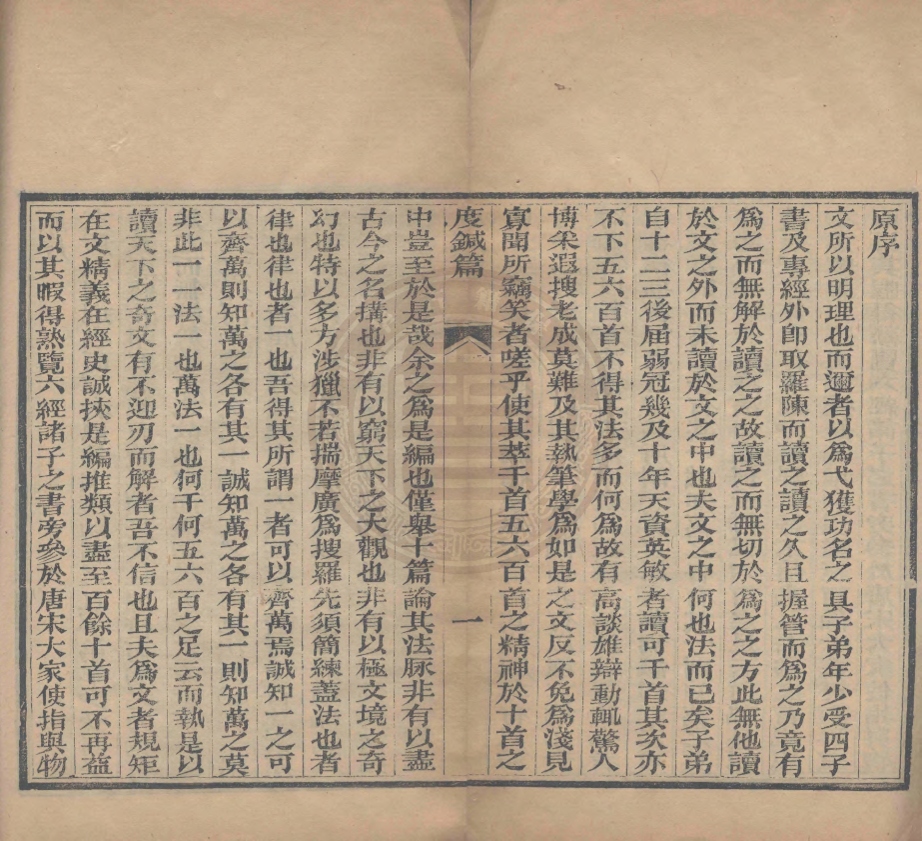 原序
文所以明理也而邇者以爲弋獲功名之具子弟年少受四子
書及專經外卽取羅陳而讀之讀之久且握管而爲之乃竟有
爲之而無解於讀之之故讀之而無切於爲之之方此無他讀
於文之外而未讀於文之中也夫文之中何也法而已矣子弟
自十二三後屆弱冠幾及十年天資英敏者讀可千首其次亦
不下五六百首不得其法多而何爲故有高談雄辯動輒驚人
博采遐搜老成莫難及其執筆學爲如是之文反不免爲淺見
寡聞所竊笑者嗟乎使其萃千首五六百首之精神於十首之
度鍼篇
一
中豈至於是哉余之爲是編也僅舉十篇論其法脉非有以盡
古今之名搆也非有以窮天下之大觀也非有以極文境之奇
幻也特以多方涉獵不若揣摩廣爲搜羅先須簡練蓋法也者
律也律也者一也吾得其所謂一者可以齊萬焉誠知一之可
以齊萬則知萬之各有其一誠知萬之各有其一則知萬之莫
非此一一法一也萬法一也何千何五六百之足云而執是以
讀天下之奇文有不迎刃而解者吾不信也且夫爲文者規矩
在文精義在經史誠挾是編推類以盡至百餘十首可不再益
而以其暇得熟覽六經諸子之書旁參於唐宋大家使指與物